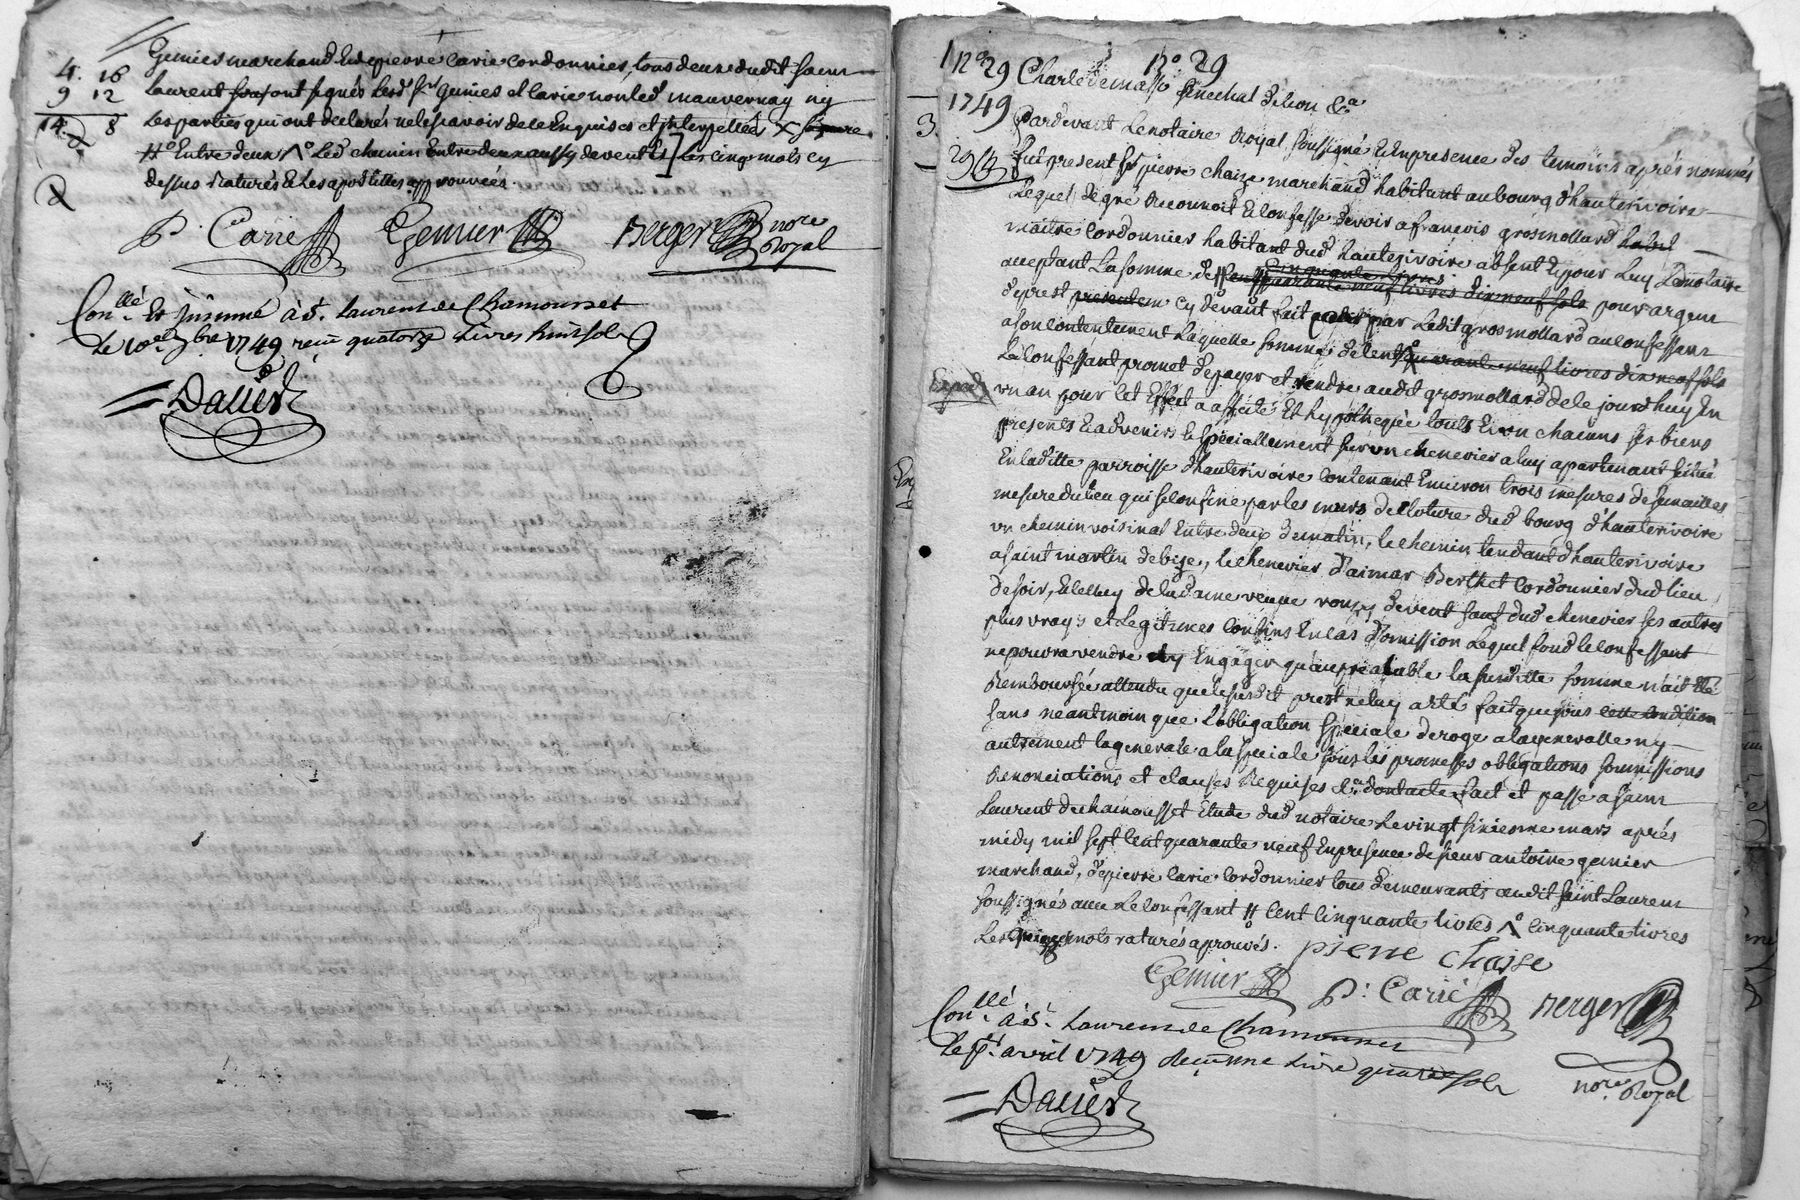 4. 16
9 12
14. 8
Gemier marchand Et de pierre Carie Cordonnier, tous deux dudit Saint
Laurent ont signés led. Sr. gemier et Carie non led. mauvernay ny
Les parties qui ont declarés ne le sçavoir de ce Enquises et Interpellés X
Entre deux Led. chemin Entre deux aussy de vent Ets Les cinq mots cy
dessus Raturés & Les apostilles approuvées.
P. Carié Gemier Berger nore
Royal
Con.llé Et Insinué à St. Laurent de Chamousset
Le 10e xbre 1749 reçu quatorze Livres huit sols
= Dalier
1 no 29 no. 29
1749
3.
29
Charle de masso senechal de Lion &a
Pardevant Le notaire Royal soussigné & En presence des temoins aprés nommés
fut present Sr. pierre chaize marchand habitant au bourg d'hauterivoire
Lequel de gré Reconnoit & Confesse devoir a francois grosmollard habit
maitre Cordonnier habitant dud. hauterivoire absent Et pour Luy Le notaire
acceptant La somme de cinquante livres quarante neuf livres dix neuf sols pour argent
de prest presentem cy devant fait par Ledit grosmollard au Confessant
a son Contentement Laquelle somme de Cent quarante neuf livres dix neuf sols
Le Confessant promet de payer et rendre audit grosmollard de ce jourd'huy En
Exped.
un an pour Cet Effect a affecté Et hypothequé touts Et un chacuns ses biens
presents & advenirs & speciallement sur un chenevier a luy apartenant situé
En laditte parroisse d'hauterivoire Contenant Environ trois mesures de semailles
mesure du lieu qui se Confine par les murs de Cloture dud. bourg d'hauterivoire
un chemin voisinal Entre deux de matin, le chemin tendant d'hauterivoire
a saint martin de bize, le chenevier d'aimar Berthet Cordonnier dud lieu
de soir, & Celluy de la dame veuve de vent dud chenevier ses autres
plus vrays et Legitimes Confins En cas d'omission Lequel fond le Confessant
ne pourra vendre ny Engager qu'au prealable la susditte somme n'ait Eté
Remboursée attendu que le susdit prest ne luy a eté fait que sous cette Condition
sans neantmoin que L'obligation speciale deroge a la generalle ny
autrement la generale a la speciale sous les promesses obligations soumissions
Renonciations et clauses Requises &a. dont acte fait et passé a saint
Laurent de chamousset Etude dud notaire Le vingt sixiesme mars aprés
midy mil sept Cent quarante neuf En presence de sieur antoine gemier
marchand, & pierre Carie Cordonnier tous demeurants audit saint Laurent
soussignés avec Le Confessant Cent Cinquante livres Cinquante livres
Les mots raturés aprouvés. pierre chaize
Gemier P. Carié Berger
nore. Royal
Con.llé à St. Laurent de Chamousset
Le avril 1749 Reçu une Livre quatre sols
= Dalier